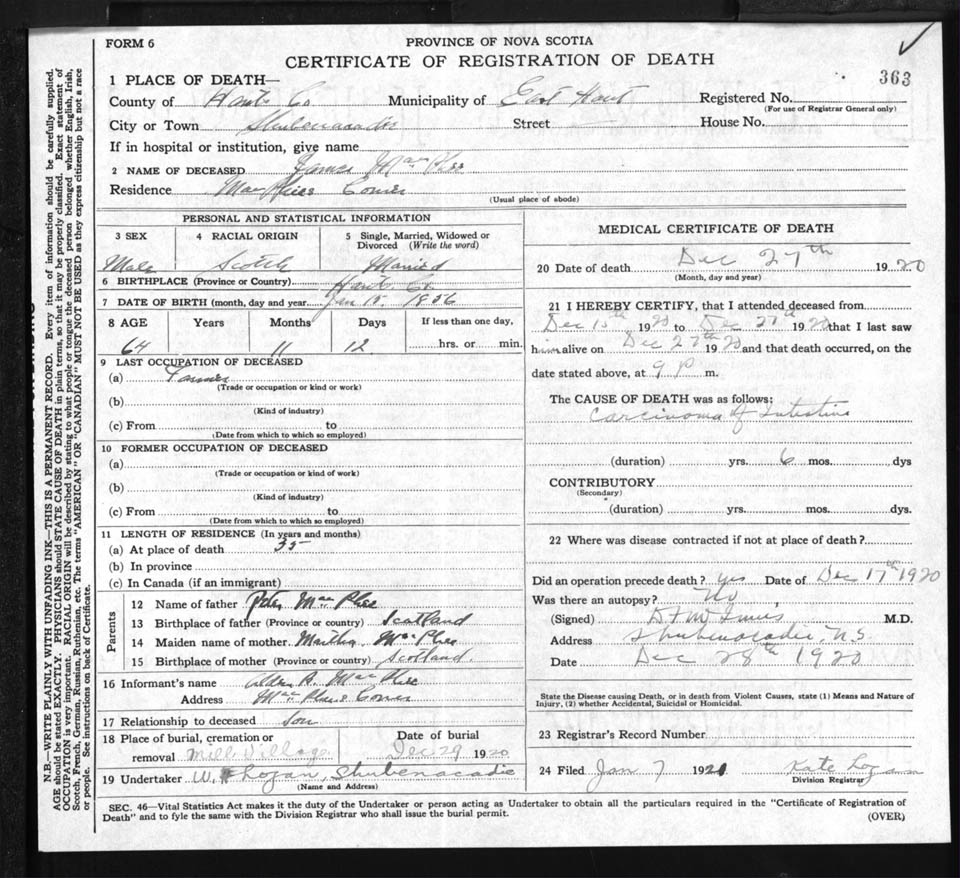 FORM 6
PROVINCE OF NOVA SCOTIA
CERTIFICATE OF REGISTRATION OF DEATH
363
1 PLACE OF DEATH—
County of Hants Co Municipality of East Hant Registered No.
(For use of Registrar General only)
City or Town Shubenacadie Street — House No.
If in hospital or institution, give name
2 NAME OF DECEASED James MacPhee
Residence MacPhees Corner
(Usual place of abode)
PERSONAL AND STATISTICAL INFORMATION
3 SEX 4 RACIAL ORIGIN 5 Single, Married, Widowed or Divorced (Write the word)
Male Scotch Married
6 BIRTHPLACE (Province or Country) Hants Co.
7 DATE OF BIRTH (month, day and year) Jan 15, 1856
8 AGE Years Months Days If less than one day,
64 11 12 hrs. or min.
9 LAST OCCUPATION OF DECEASED
(a) Farmer
(Trade or occupation or kind or work)
(b)
(Kind of industry)
(c) From to
(Date from which to which so employed)
10 FORMER OCCUPATION OF DECEASED
(a)
(Trade or occupation or kind of work)
(b)
(Kind of industry)
(c) From to
(Date from which to which so employed)
11 LENGTH OF RESIDENCE (In years and months)
(a) At place of death 35
(b) In province
(c) In Canada (if an immigrant)
Parents
12 Name of father Peter MacPhee
13 Birthplace of father (Province or country) Scotland
14 Maiden name of mother Martha MacPhee
15 Birthplace of mother (Province or country) Scotland.
16 Informant's name R. MacPhee
Address MacPhees Corner
17 Relationship to deceased Son
18 Place of burial, cremation or removal Mill Village Date of burial Dec 29 1920
19 Undertaker W. Logan, Shubenacadie
(Name and Address)
MEDICAL CERTIFICATE OF DEATH
20 Date of death Dec 27th 1920
(Month, day and year)
21 I HEREBY CERTIFY, that I attended deceased from
Dec 15th 1920 to Dec 27th 1920 that I last saw
him alive on Dec 27th 1920 and that death occurred, on the
date stated above, at 9 P m.
The CAUSE OF DEATH was as follows:
Carcinoma of Intestine
(duration) yrs. 6 mos. dys
CONTRIBUTORY
(Secondary)
(duration) yrs. mos. dys.
22 Where was disease contracted if not at place of death?
Did an operation precede death? yes Date of Dec 17th 1920
Was there an autopsy? No
(Signed) M.D.
Address Shubenacadie, N.S.
Date Dec 28th 1920
State the Disease causing Death, or in death from Violent Causes, state (1) Means and Nature of
Injury, (2) whether Accidental, Suicidal or Homicidal.
23 Registrar's Record Number
24 Filed Jan 7 1921 Kate Logan
Division Registrar
SEC. 46—Vital Statistics Act makes it the duty of the Undertaker or person acting as Undertaker to obtain all the particulars required in the "Certificate of Registration of
Death" and to fyle the same with the Division Registrar who shall issue the burial permit.
(OVER)
N.B.—WRITE PLAINLY WITH UNFADING INK—THIS IS A PERMANENT RECORD. Every item of information should be carefully supplied.
AGE should be stated EXACTLY. PHYSICIANS should STATE CAUSE OF DEATH in plain terms, so that it may be properly classified. Exact statement of
OCCUPATION is very important. RACIAL ORIGIN will be described by stating to what people or tongue the deceased person belonged whether English, Irish,
Scotch, French, German, Russian, Ruthenian, etc. The terms "AMERICAN" OR "CANADIAN" MUST NOT BE USED as they express citizenship but not a race
or people. See instructions on back of Certificate.